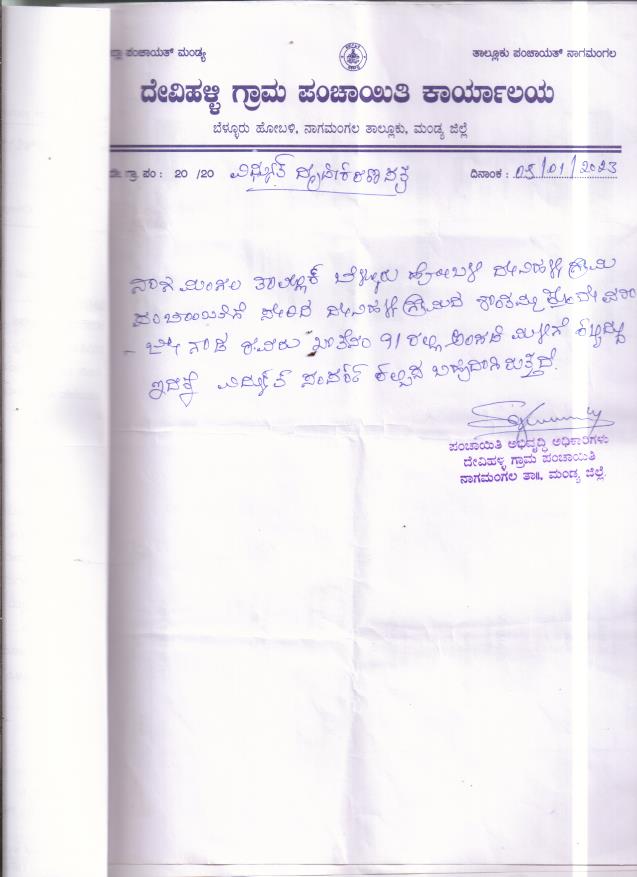 ಪಂಚಾಯತ್ ಮಂಡ್ಯ
ತಾಲ್ಲೂಕು ಪಂಚಾಯತ್ ನಾಗಮಂಗಲ
ದೇವಿಹಳ್ಳಿ ಗ್ರಾಮ ಪಂಚಾಯಿತಿ ಕಾರ್ಯಾಲಯ
ಬೆಳ್ಳೂರು ಹೋಬಳಿ, ನಾಗಮಂಗಲ ತಾಲ್ಲೂಕು, ಮಂಡ್ಯ ಜಿಲ್ಲೆ
ಗ್ರಾ ಪಂ : 20 /20 ದಿನಾಂಕ : 05/01/2023
ನಾಗಮಂಗಲ ತಾಲ್ಲೂಕ್ ಬೆಳ್ಳೂರು ಹೋಬಳಿ ದೇವಿಹಳ್ಳಿ ಗ್ರಾಮ
ಪಂಚಾಯಿತಿಗೆ ಸೇರಿದ ದೇವಿಹಳ್ಳಿ ಗ್ರಾಮದ
ಖಾತೆನಂ 91 ರಲ್ಲಿ
ಇದಕ್ಕೆ ವಿದ್ಯುತ್ ಸಂಪರ್ಕ ಕಲ್ಪಿಸ ಬಹುದಾಗಿರುತ್ತದೆ.
ಪಂಚಾಯಿತಿ ಅಭಿವೃದ್ಧಿ ಅಧಿಕಾರಿಗಳು
ದೇವಿಹಳ್ಳಿ ಗ್ರಾಮ ಪಂಚಾಯಿತಿ
ನಾಗಮಂಗಲ ತಾ॥, ಮಂಡ್ಯ ಜಿಲ್ಲೆ.